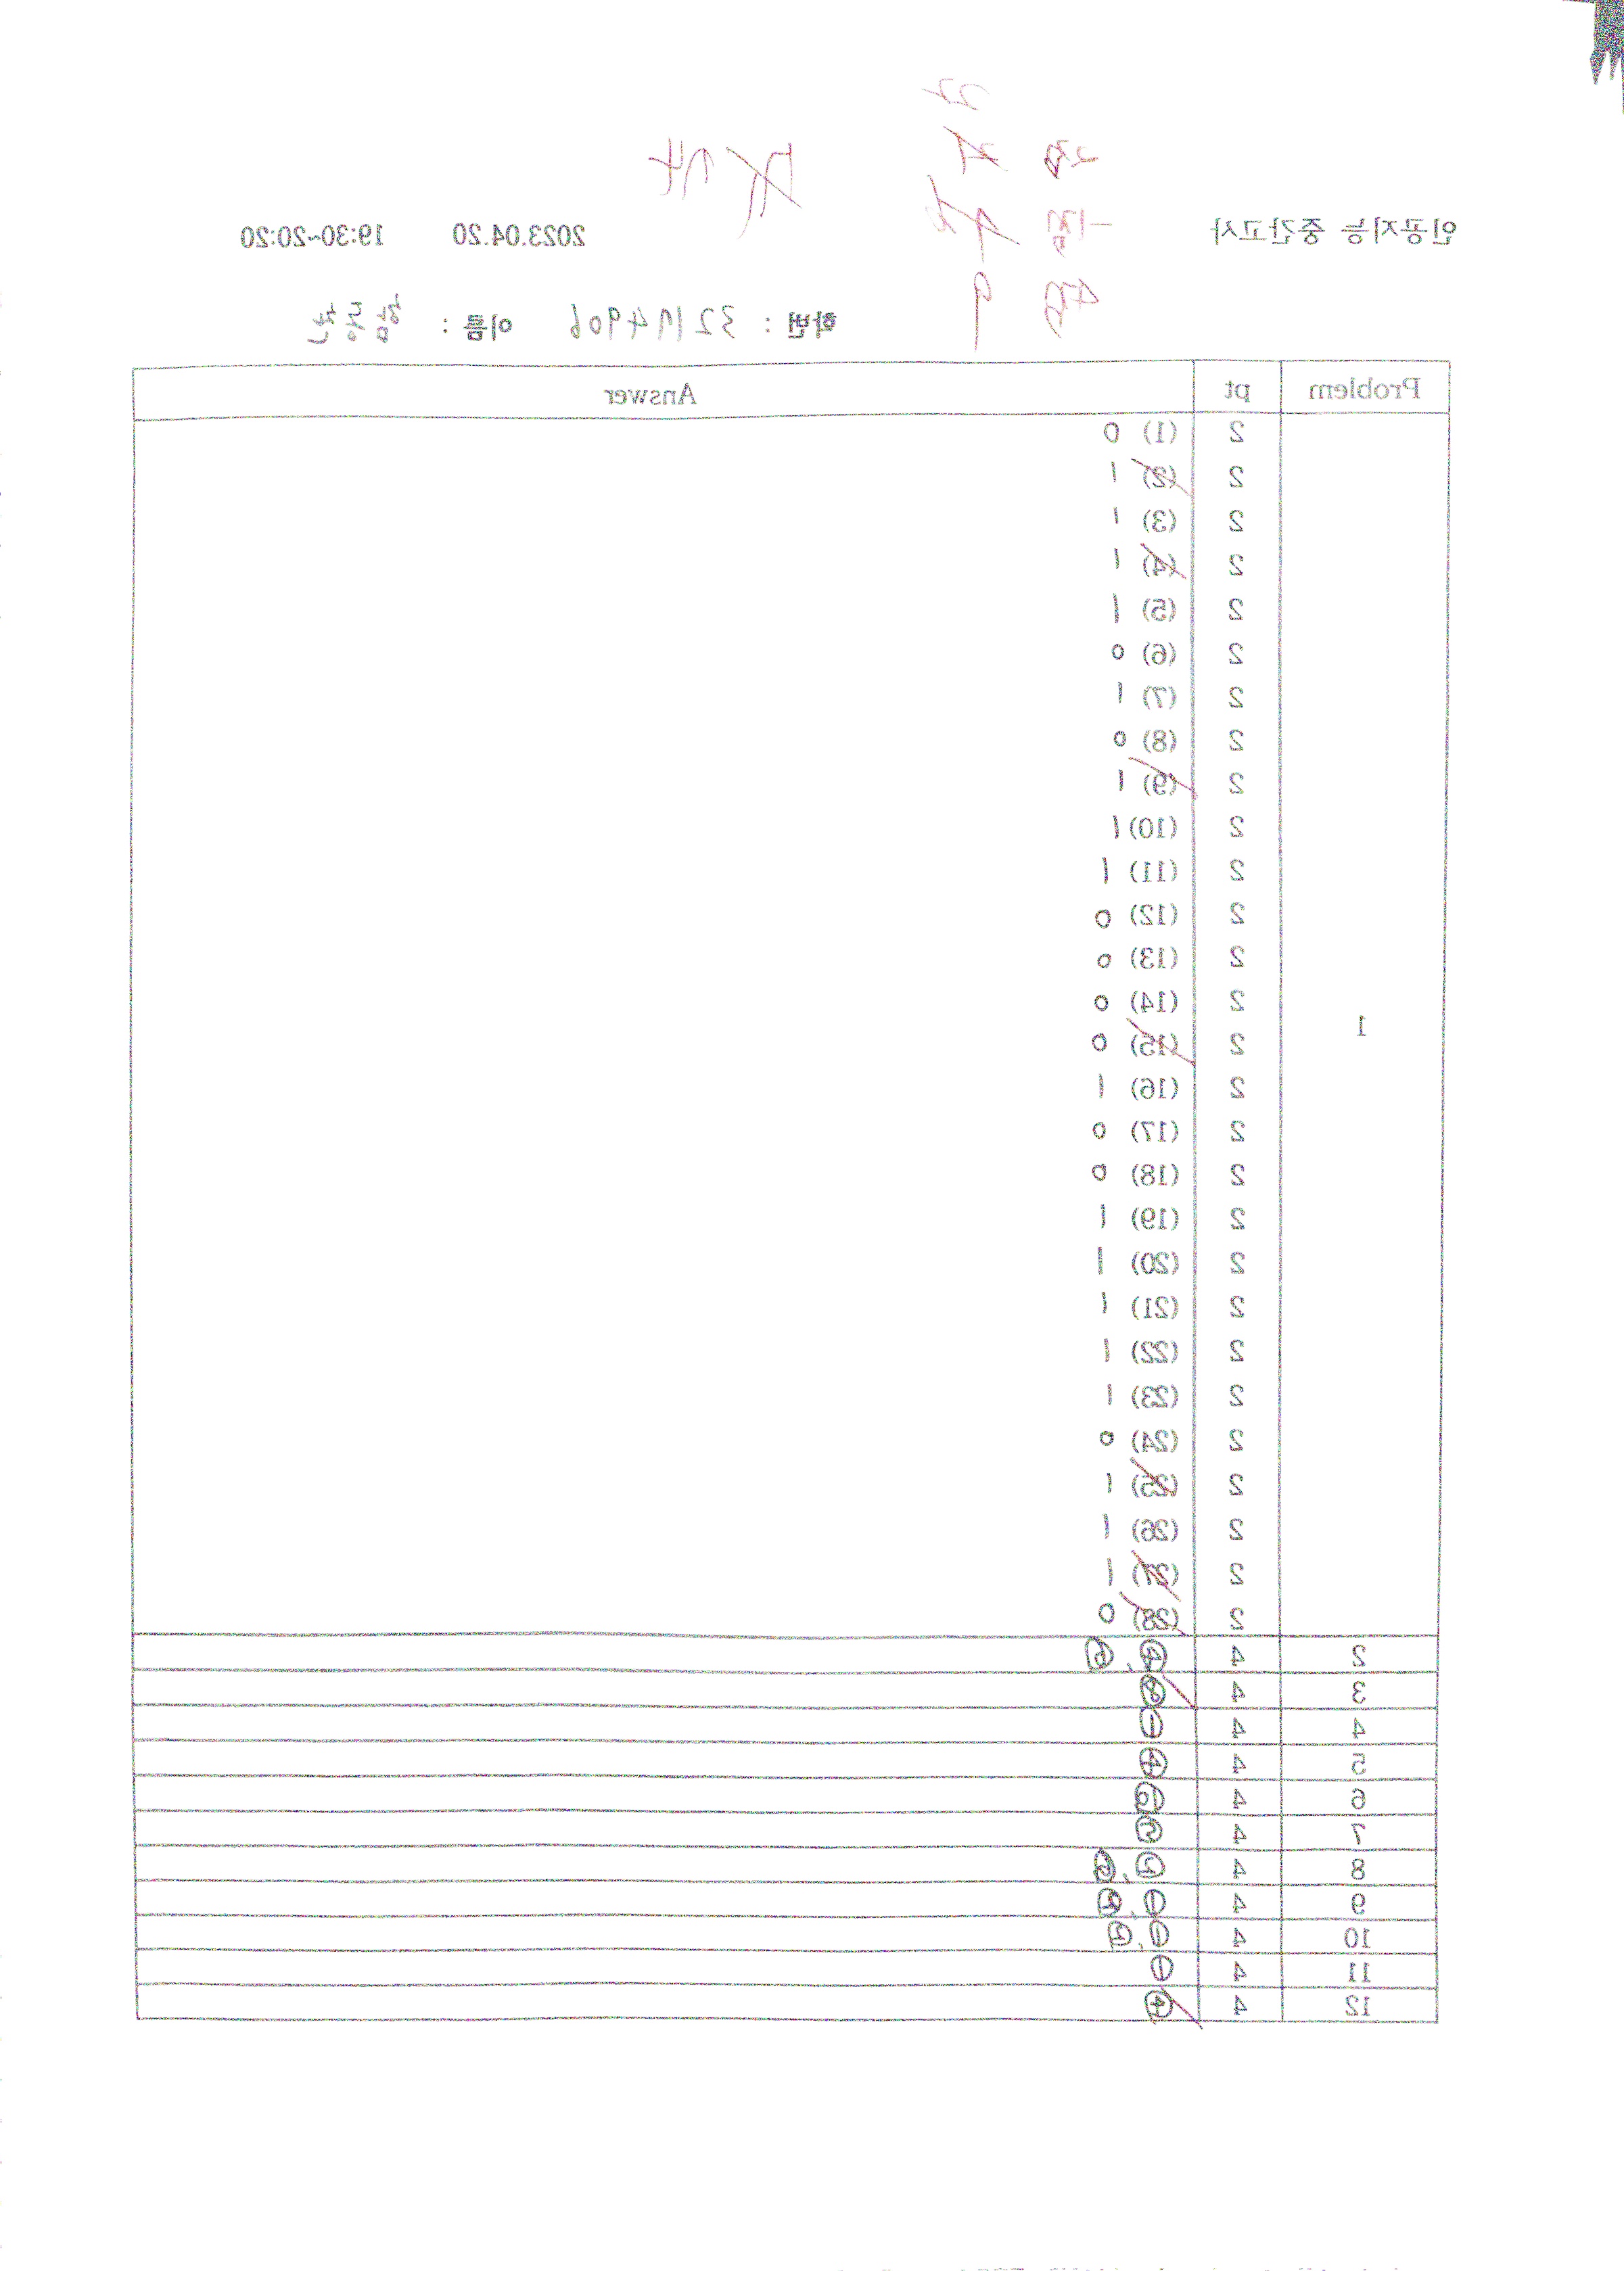 인공지능 중간고사 2023.04.20 19:30~20:20
학번 : 32174906 이름 :
Problem pt Answer
1
2 (1) 0
2 (2) 1
2 (3) 1
2 (4) 1
2 (5) 1
2 (6) 0
2 (7) 1
2 (8) 0
2 (9) 1
2 (10) 1
2 (11) 1
2 (12) 0
2 (13) 0
2 (14) 0
2 (15) 0
2 (16) 1
2 (17) 0
2 (18) 0
2 (19) 1
2 (20) 1
2 (21) 1
2 (22) 1
2 (23) 1
2 (24) 0
2 (25) 1
2 (26) 1
2 (27) 1
2 (28) 0
2 4
3 4
4 4 ①
5 4 ④
6 4
7 4
8 4
9 4 ①,
10 4 ①,
11 4 ①
12 4 ④